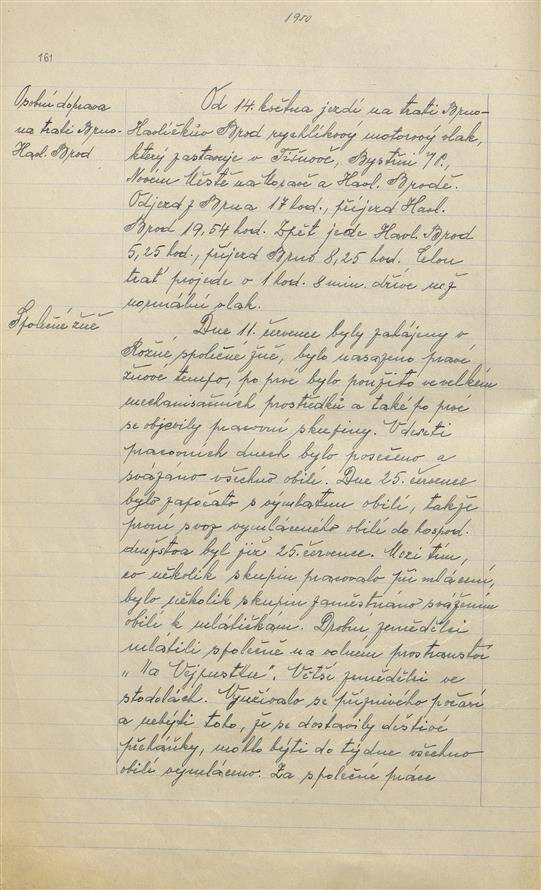 1950
161
Osobní doprava
na trati Brno-
Havl. Brod
Od 14. května jezdí na trati Brno-
Havlíčkův Brod rychlíkový motorový vlak,
který zastavuje v Tišnově, Bystřici n/P.,
Novém Městě na Moravě a Havl. Brodě.
Odjezd z Brna 17 hod., příjezd Havl.
Brod 19,54 hod. Zpět jede Havl. Brod
5,25 hod., příjezd Brno 8,25 hod. Celou
trať projede o 1 hod. 8 min. dříve než
normální vlak.
Společné žně
Dne 11. července byly zahájeny v
Rožné společné žně, bylo nasazeno pravé
žňové tempo, po prvé bylo použito ve velkém
mechanisačních prostředků a také po prvé
se objevily pracovní skupiny. V deseti
pracovních dnech bylo posečeno a
svázáno všechno obilí. Dne 25. července
bylo započato s výmlatem obilí, takže
první svoz vymláceného obilí do hospod.
družstva byl již 25. července. Mezi tím,
co několik skupin pracovalo při mlácení,
bylo několik skupin zaměstnáno svážením
obilí k mlatičkám. Drobní zemědělci
mlátili společně na volném prostranství
„Na Vejpustku". Větší zemědělci ve
stodolách. Využívalo se příznivého počasí
a nebýti toho, že se dostavily deštivé
přeháňky, mohlo býti do týdne všechno
obilí vymláceno. Za společné práce